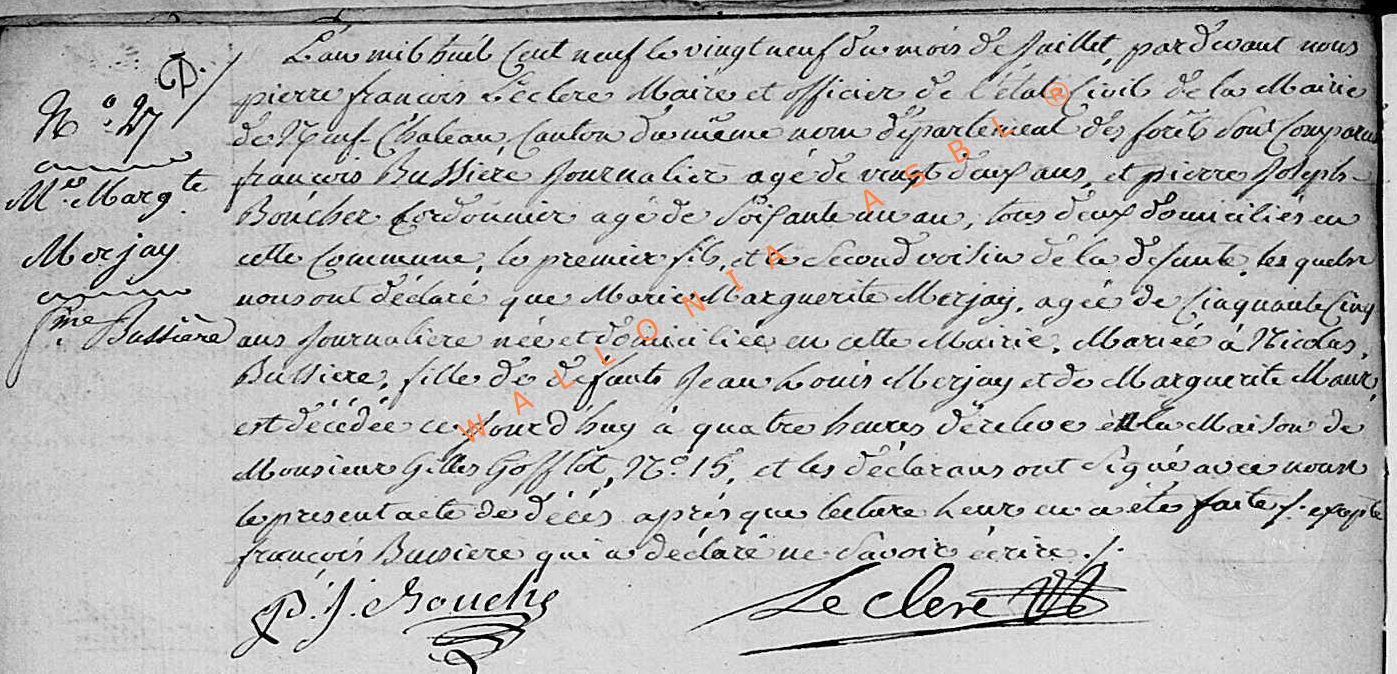 D./
N.º 27
M.ie Marg.te
Merjay
f.me Bussière
L'an mil huit Cent neuf le vingt neuf du mois de Juillet, par devant nous
pierre françois Leclere Maire et officier de l'état Civil de la Mairie
de Neuf-Chateau, Canton du même nom departement des forêts Sont Comparus
françois Bussiere Journalier agé de vingt deux ans, et pierre Joseph
Boucher Cordonnier agé de Soixante un an, tous deux domiciliés en
cette Commune, le premier fils, et le Second voisin de la defunte, les quels
nous ont déclaré que Marie Marguerite Merjay, agée de Cinquante Cinq
ans Journaliere née et domiciliée en cette Mairie, Mariée à Nicolas
Bussiere, fille de defunts Jean Louis Merjay et de Marguerite Maur,
est décédée ce Jourd'huy à quatre heures de relevé en la Maison de
Monsieur Gilles Gofflot, N.º 15, et les déclarans ont Signé avec nous
le present acte de décés après que lecture leur en a été faite /. excepté
françois Bussiere qui a déclaré ne Savoir écrire ./.
P. J. Bouché
Leclere
WALLONIA ASBL ®